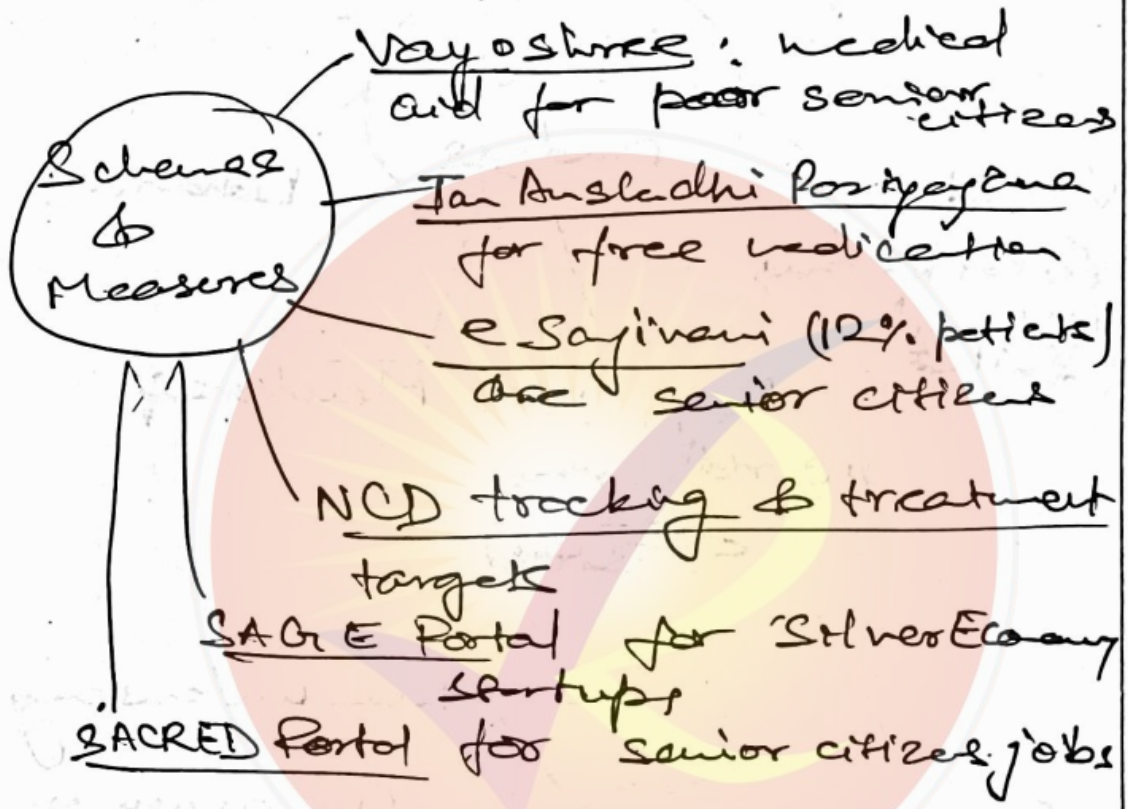 Schemes
&
Measures
Vayoshree : medical
aid for poor senior
citizens
Jan Aushadhi Pariyojana
for free medication
e Sajivani (12% patients)
are senior citizens
NCD tracking & treatment
targets
SAGE Portal for 'Silver Economy
startups
SACRED Portal for senior citizens jobs